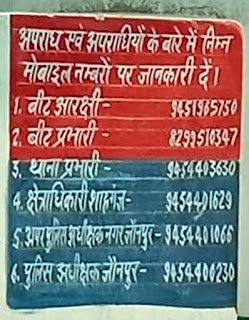 अपराध एवं अपराधियों के बारे में निम्न
मोबाइल नम्बरों पर जानकारी दें।
1. बीट आरक्षी - 9451965750
2. बीट प्रभारी - 8299510347
3. थाना प्रभारी - 9454403630
4. क्षेत्राधिकारी शाहगंज - 9454401629
5. अपर पुलिस अधीक्षक नगर जौनपुर - 9454401066
6. पुलिस अधीक्षक जौनपुर - 9454400280